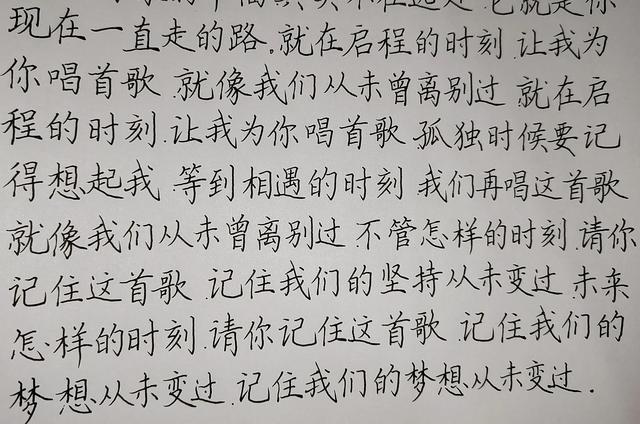 它就是你
现在一直走的路.就在启程的时刻.让我为
你唱首歌.就像我们从未曾离别过.就在启
程的时刻.让我为你唱首歌.孤独时候要记
得想起我.等到相遇的时刻.我们再唱这首歌
就像我们从未曾离别过.不管怎样的时刻.请你
记住这首歌.记住我们的坚持从未变过.未来
怎样的时刻.请你记住这首歌.记住我们的
梦想从未变过.记住我们的梦想从未变过.